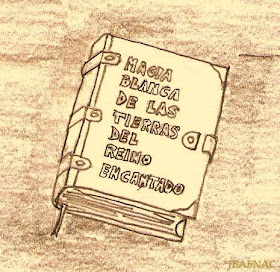 MAGIA
BLANCA
DE LAS
TIERRAS
DEL
REINO
ENCANTADO
JBAENAL